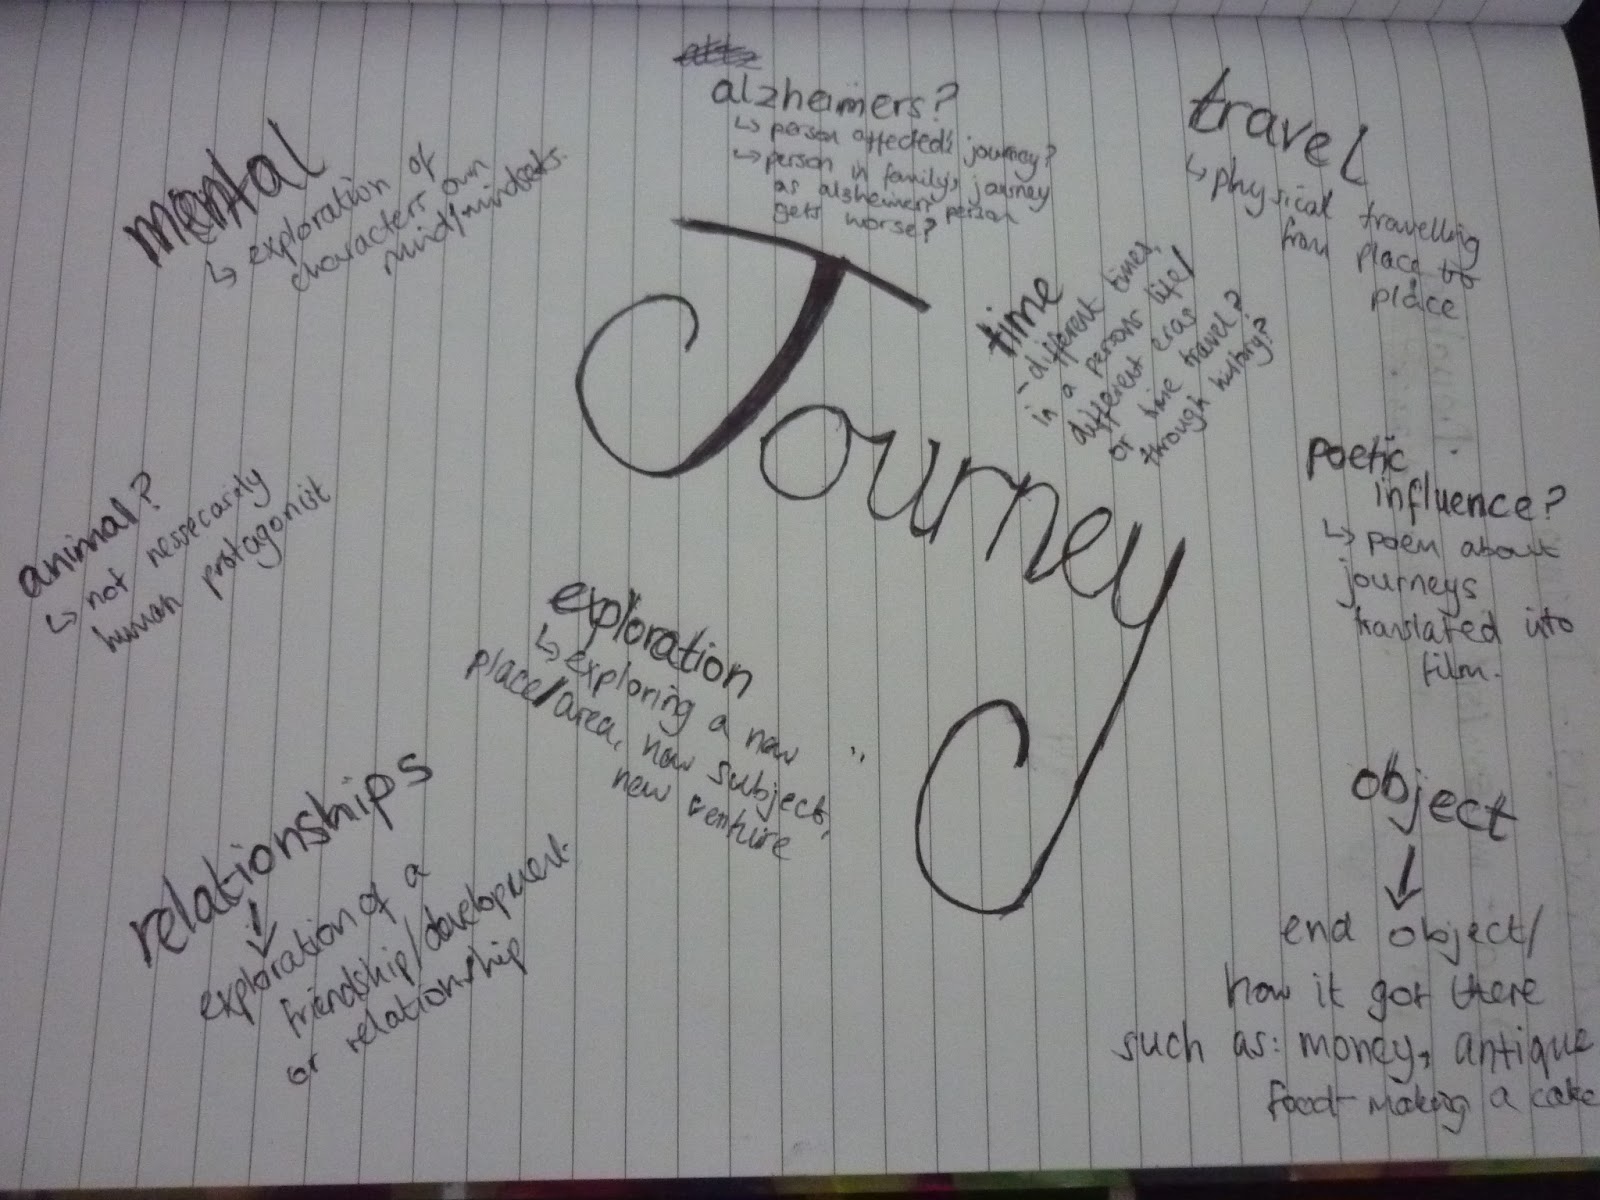 alzheimers?
↳ person affected's journey?
↳ person in family's journey
as alzheimers person
gets worse?
travel
↳ physical travelling
from place to
place
mental
↳ exploration of
characters own
mind/mindsets.
Journey
time
- different times,
in a persons life/
different eras
or time travel?
through history?
poetic
influence?
↳ poem about
journeys
translated into
film.
animal?
↳ not nessecarily
human protagonist
exploration
↳ exploring a new
place/area, new subject,
new venture
relationships
exploration of a
friendship/development
or relationship
object
end object/
how it got there
such as: money, antique
food - making a cake